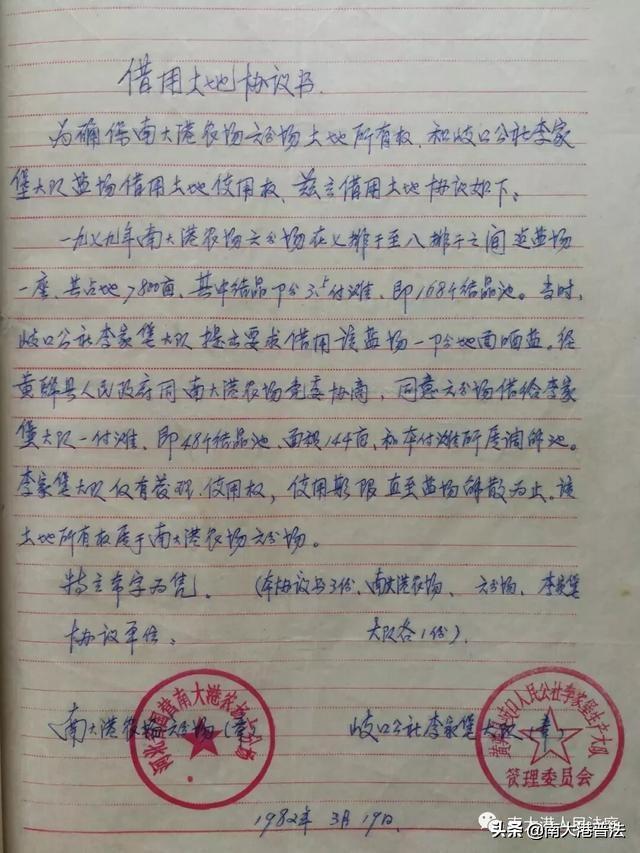 借用土地协议书
为确保南大港农场六分场土地所有权、和岐口公社李家
堡大队盐场借用土地使用权、兹立借用土地协议如下:
一九七九年南大港农场六分场在七排干至八排干之间建盐场
一座、共占地7800亩、其中结晶部分3.5付滩、即168个结晶池。当时,
岐口公社李家堡大队提出要求借用该盐场一部分地面晒盐。经
黄骅县人民政府同南大港农场党委协商,同意六分场借给李家
堡大队一付滩、即48个结晶池、面积144亩、和本付滩所属调节池。
李家堡大队仅有管理、使用权,使用期限直至盐场解散为止。该
土地所有权属于南大港农场六分场。
特立本字为凭。(本协议书3份、南大港农场、六分场、李家堡
大队各1份)
协议单位:
南大港农场六分场(章) 岐口公社李家堡大队(章)
国营南大港农场六分场
岐口人民公社李家堡生产大队
管理委员会
1982年3月19日.
南大港人民法庭
头条 @南大港普法